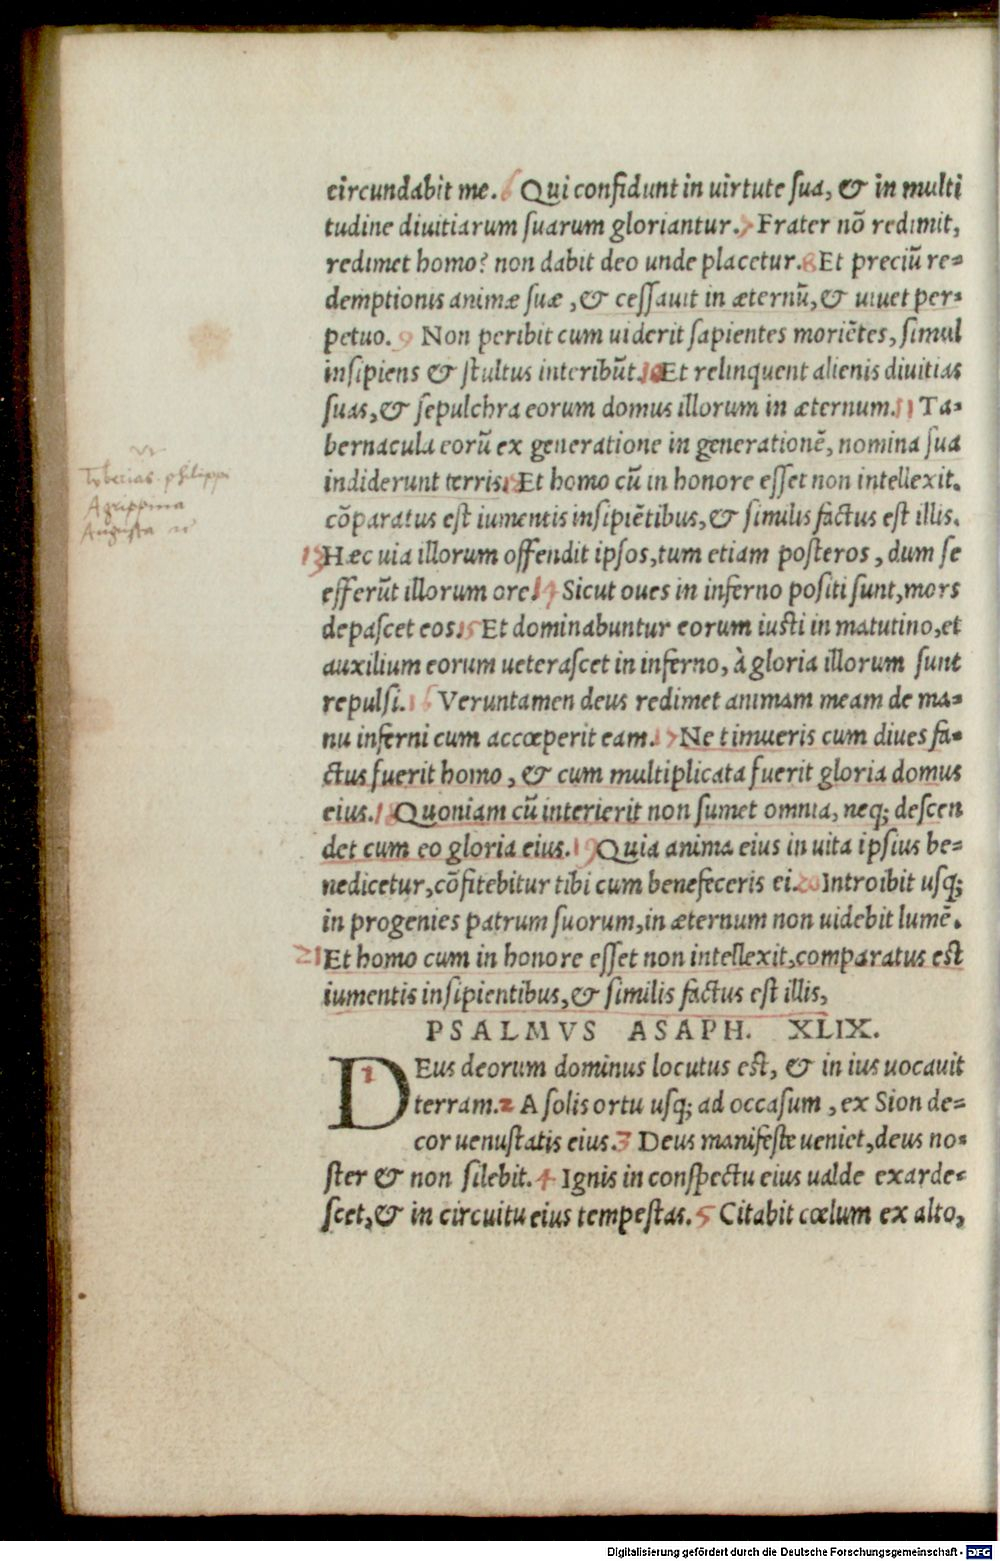 circundabit me. 6 Qui confidunt in uirtute sua, & in multi
tudine diuitiarum suarum gloriantur. 7 Frater nõ redimit,
redimet homo? non dabit deo unde placetur. 8 Et preciũ re=
demptionis animæ suæ, & cessauit in æternũ, & uiuet per=
petuo. 9 Non peribit cum uiderit sapientes moriẽtes, simul
insipiens & stultus interibũt. 10 Et relinquent alienis diuitias
suas, & sepulchra eorum domus illorum in æternum. 11 Ta=
bernacula eorũ ex generatione in generationẽ, nomina sua
indiderunt terris. 12 Et homo cũ in honore esset non intellexit.
cõparatus est iumentis insipiẽtibus, & similis factus est illis.
13 Hæc uia illorum offendit ipsos, tum etiam posteros, dum se
efferũt illorum ore. 14 Sicut oues in inferno positi sunt, mors
depascet eos. 15 Et dominabuntur eorum iusti in matutino, et
auxilium eorum ueterascet in inferno, à gloria illorum sunt
repulsi. 16 Veruntamen deus redimet animam meam de ma=
nu inferni cum accœperit eam. 17 Ne timueris cum diues fa=
ctus fuerit homo, & cum multiplicata fuerit gloria domus
eius. 18 Quoniam cũ interierit non sumet omnia, neq; descen
det cum eo gloria eius. 19 Quia anima eius in uita ipsius be=
nedicetur, cõfitebitur tibi cum benefeceris ei. 20 Introibit usq;
in progenies patrum suorum, in æternum non uidebit lumẽ.
21 Et homo cum in honore esset non intellexit, comparatus est
iumentis insipientibus, & similis factus est illis,
PSALMVS ASAPH. XLIX.
1 DEus deorum dominus locutus est, & in ius uocauit
terram. 2 A solis ortu usq; ad occasum, ex Sion de=
cor uenustatis eius. 3 Deus manifeste ueniet, deus no=
ster & non silebit. 4 Ignis in conspectu eius ualde exarde=
scet, & in circuitu eius tempestas. 5 Citabit cœlum ex alto,
Tyberias philippi
Agrippina
Augusta
Digitalisierung gefördert durch die Deutsche Forschungsgemeinschaft - DFG